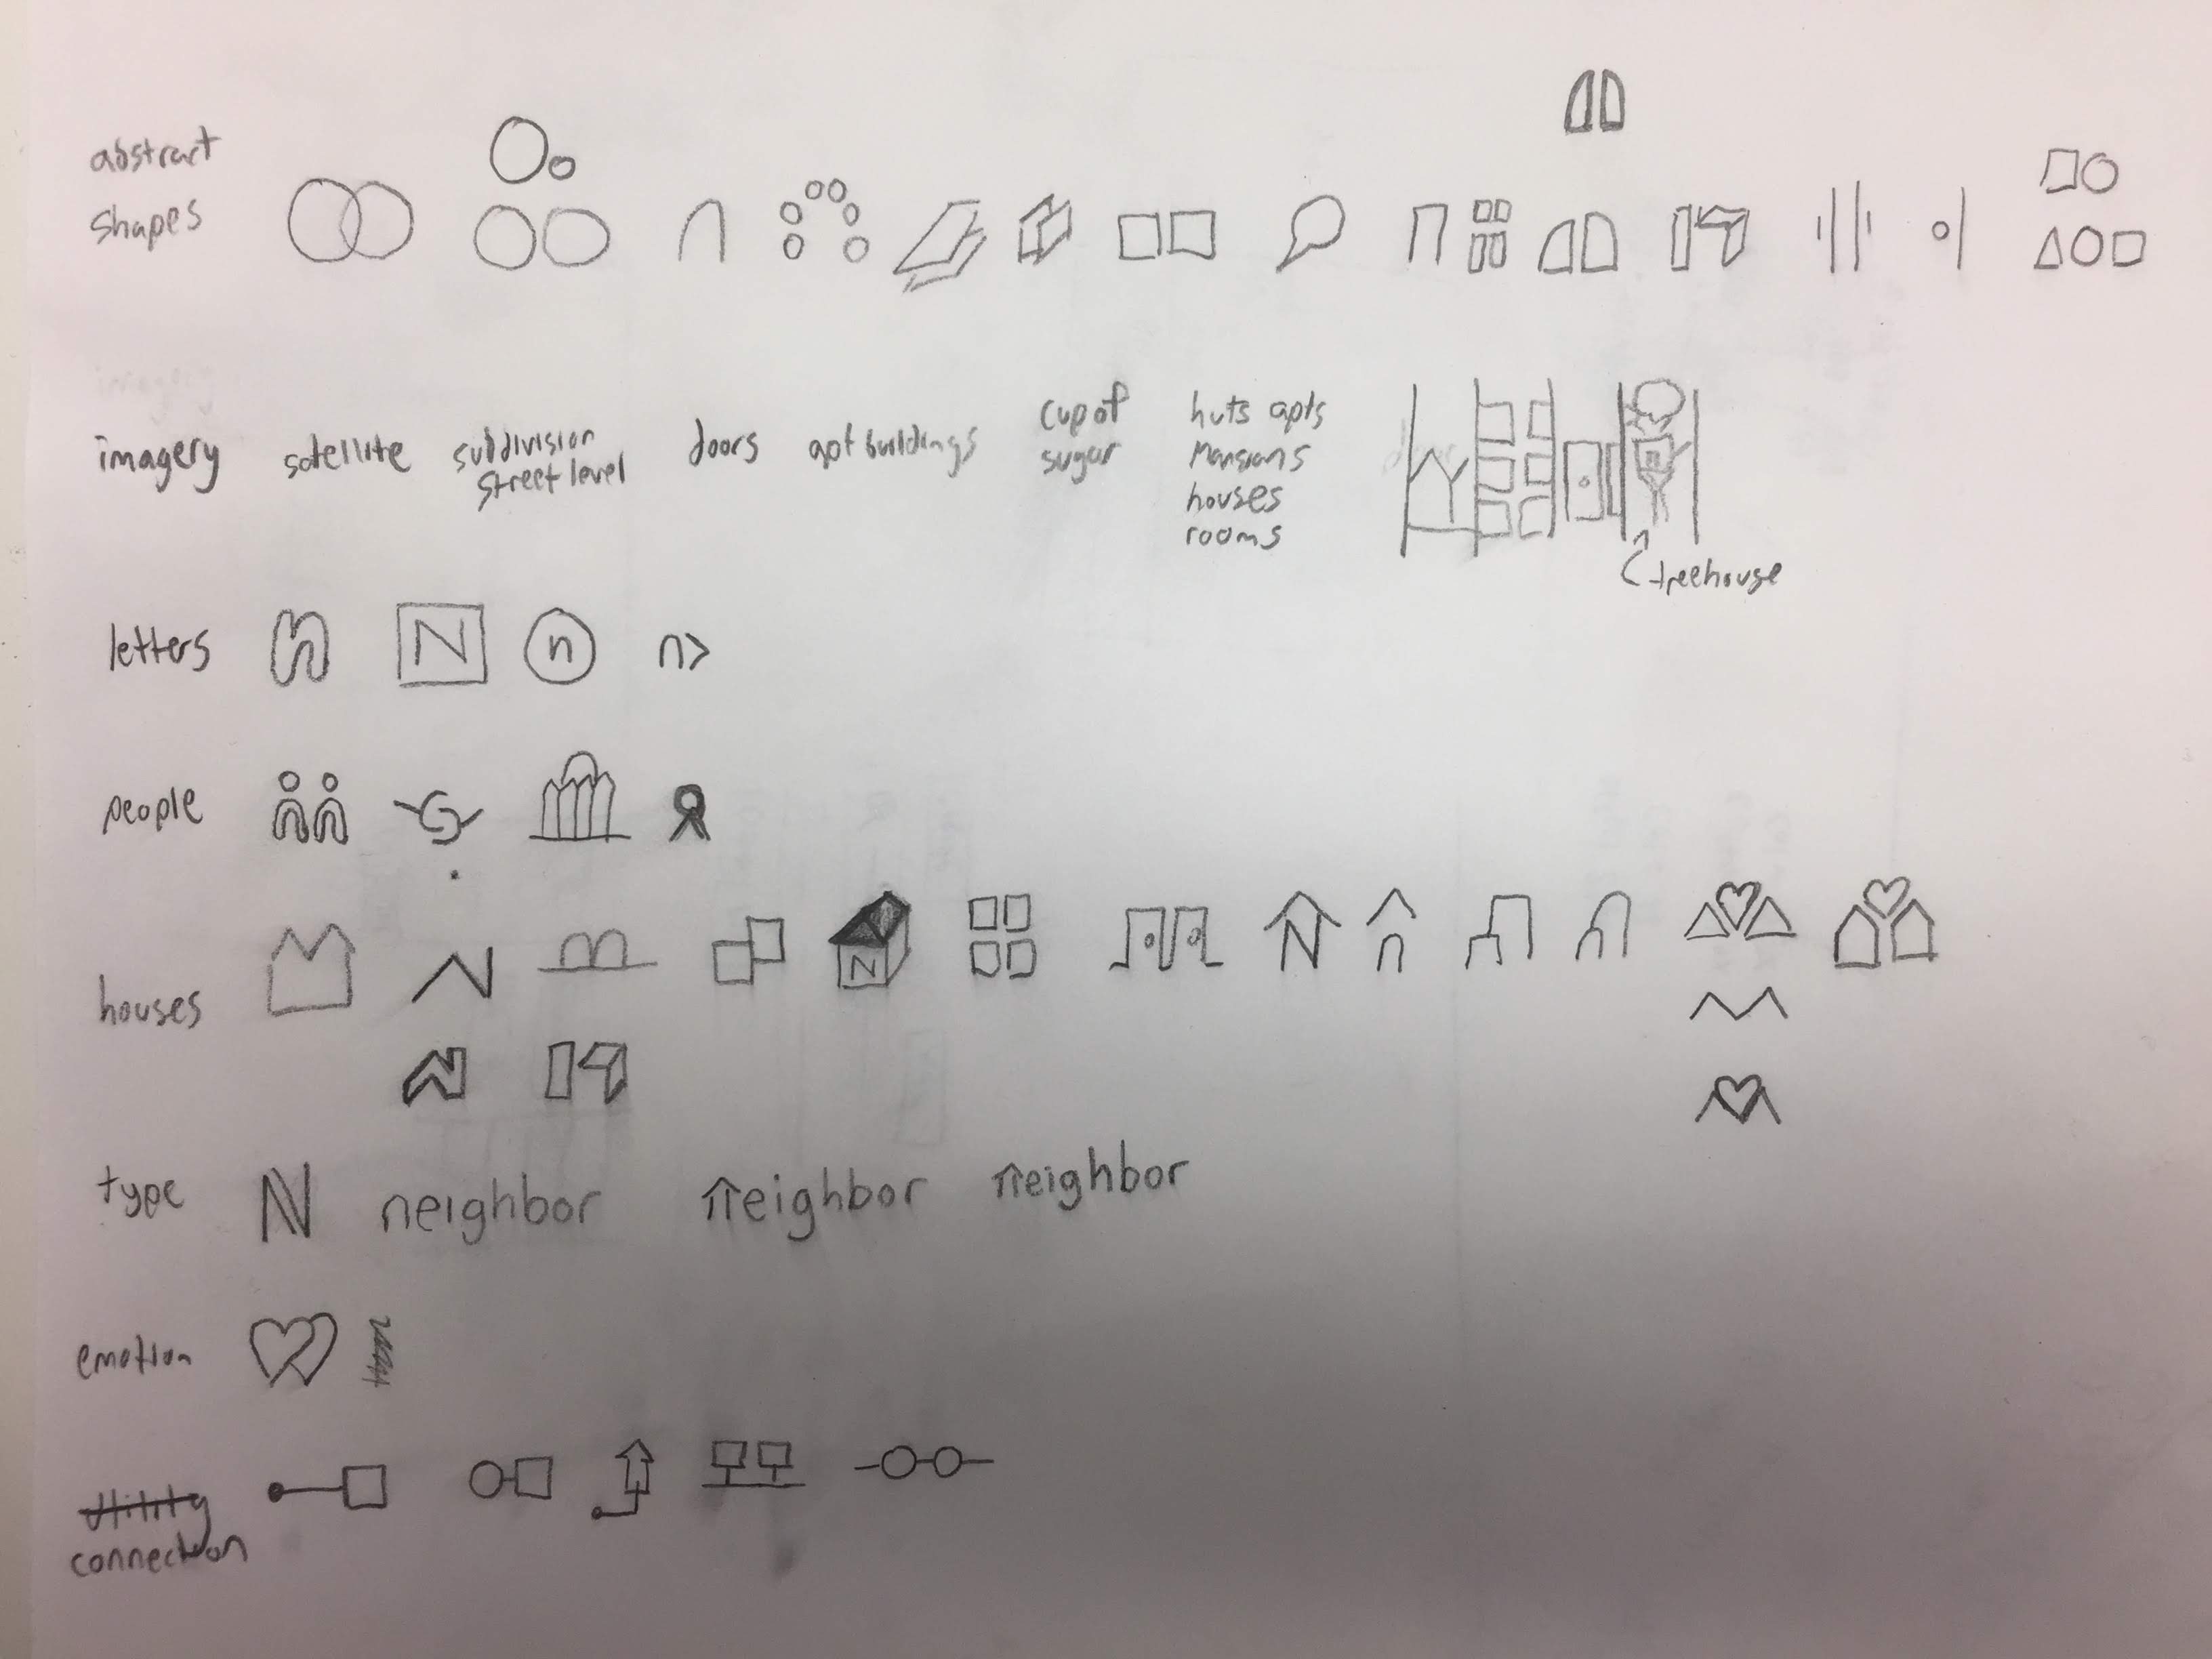 abstract
shapes
imagery satellite subdivision street level doors apt buildings cup of sugar huts apts
mansions
houses
rooms
treehouse
letters n N n n>
people
houses N N n
type N neighbor neighbor neighbor
emotion
utility
connection